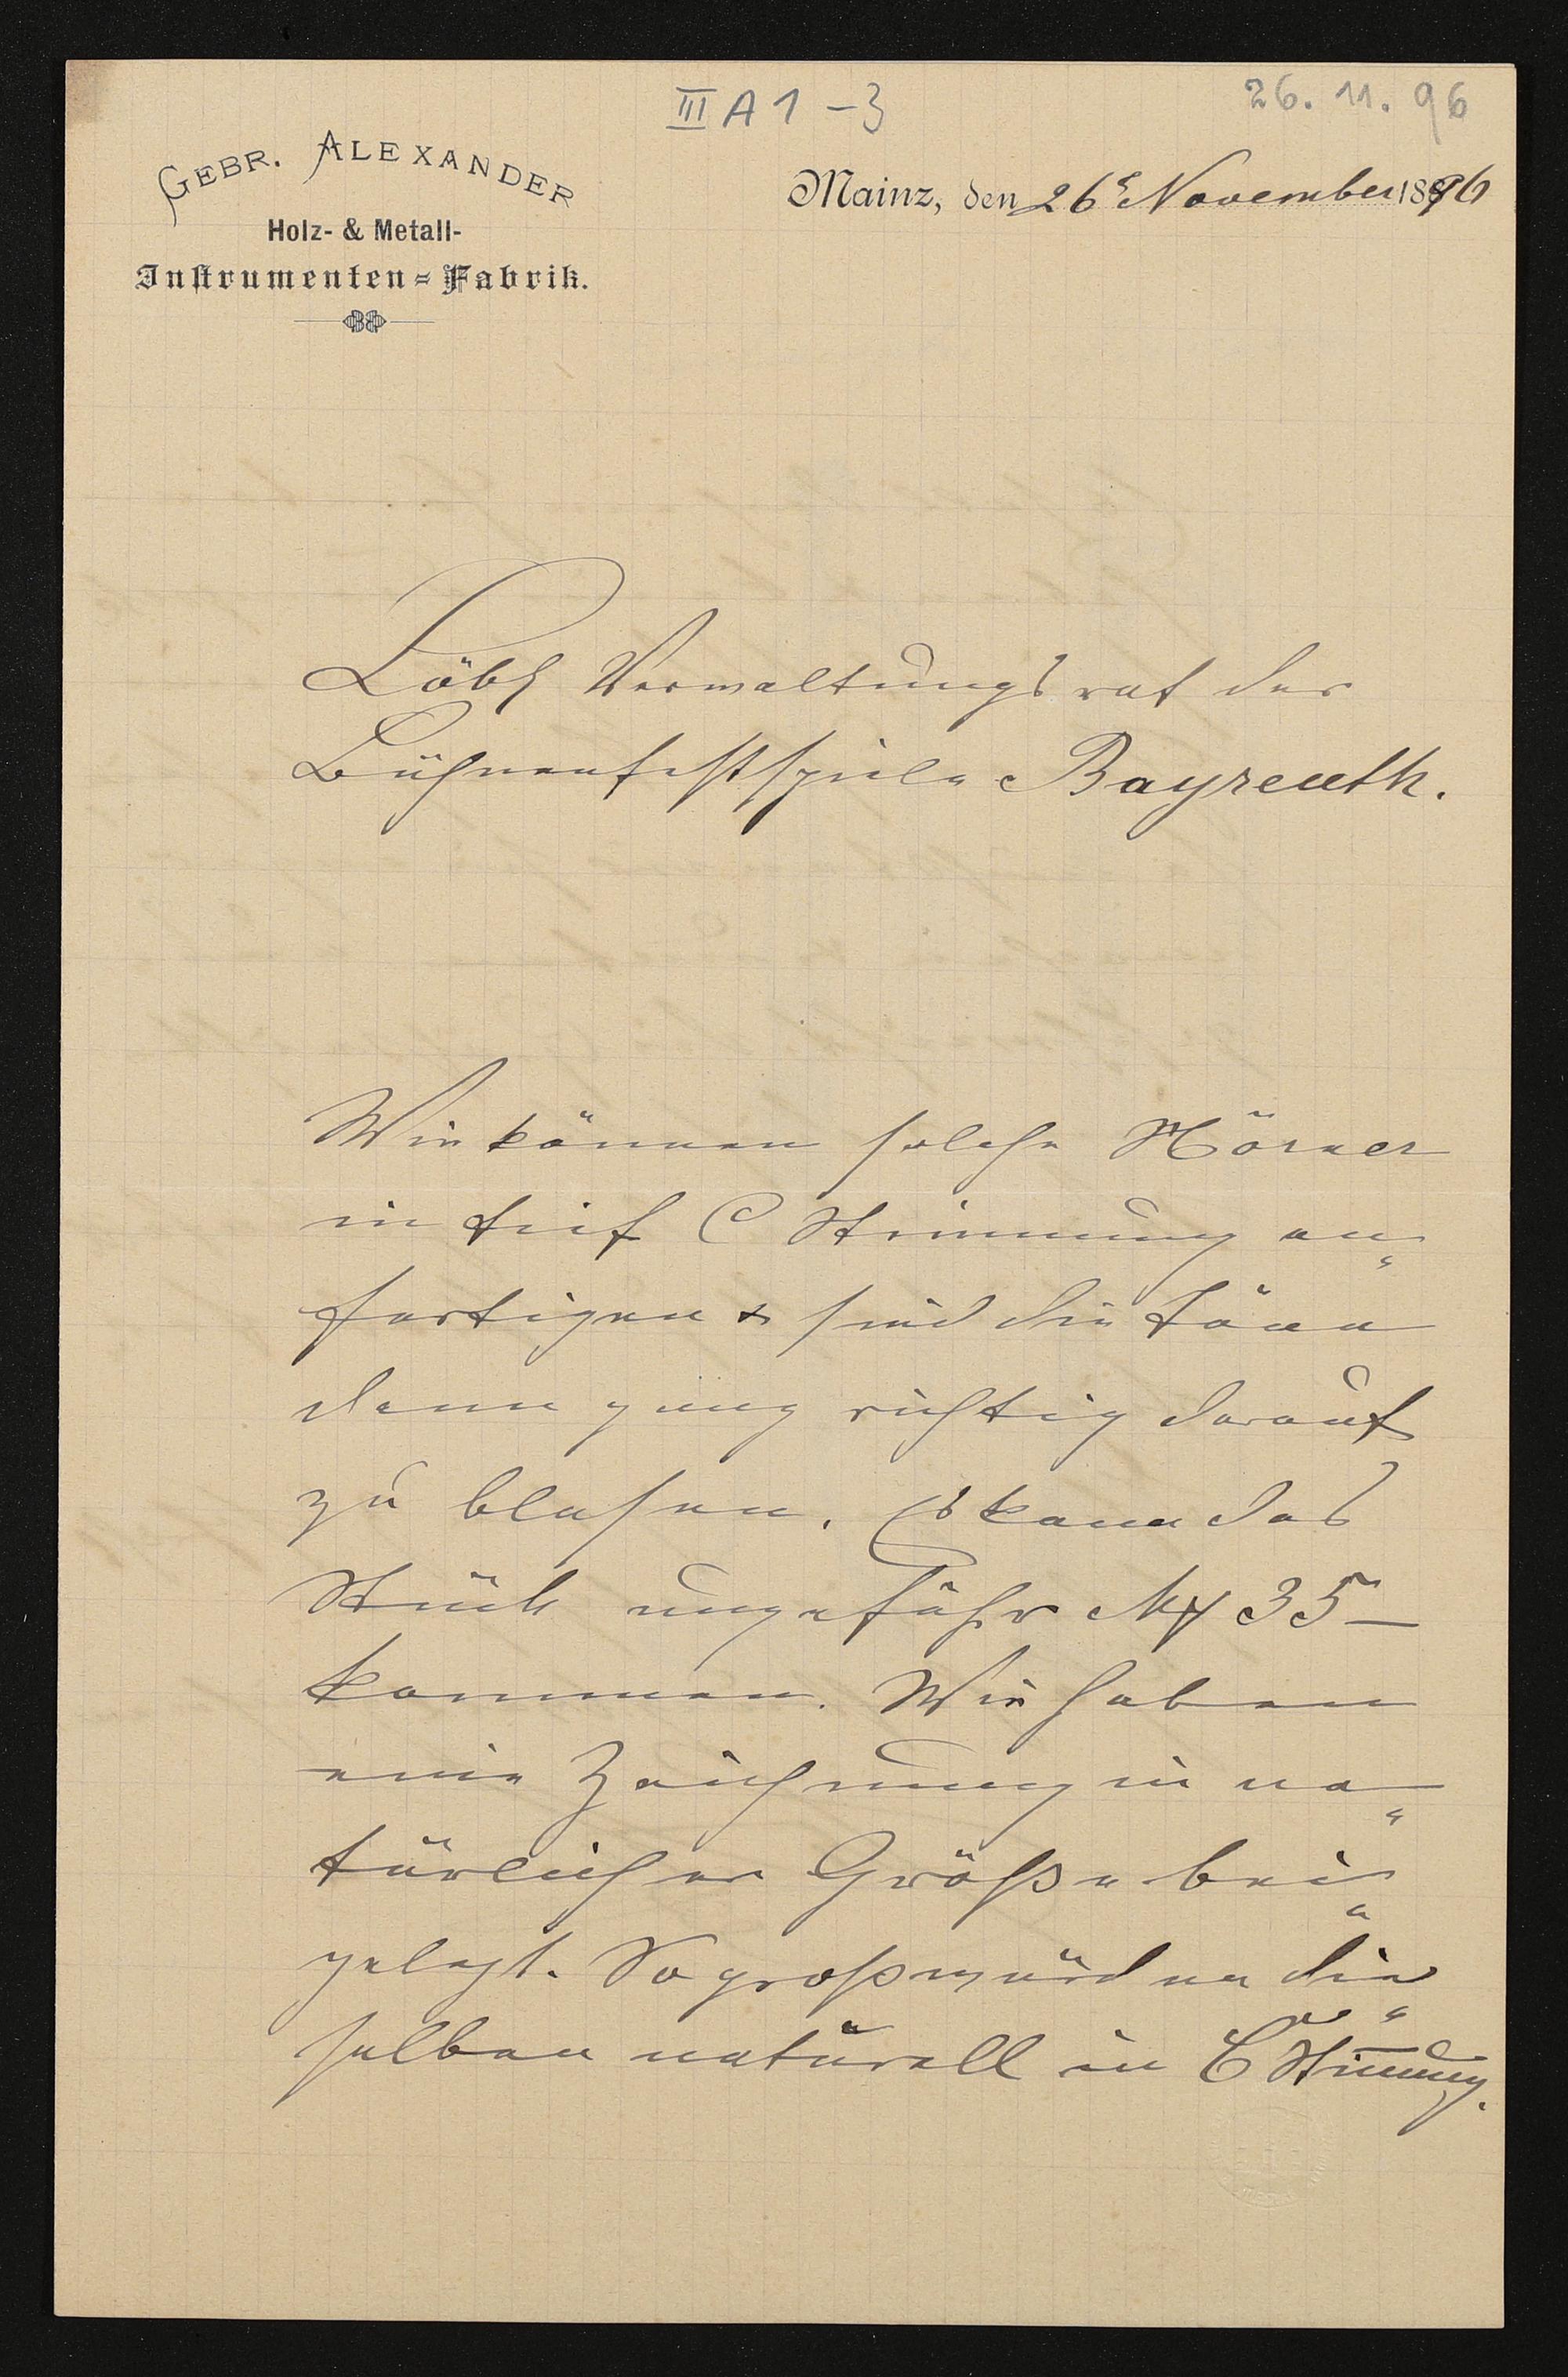 III A 1 - 3
26. 11. 96
GEBR. ALEXANDER
Holz- & Metall-
Instrumenten-Fabrik.
Mainz, den 26t November 1896
Löbl Verwaltungsrat der
Bühnenfestspiele Bayreuth.
Wir können solche Hörner
in tief C Stimmung an-
fertigen & sind die Töne
dann ganz richtig darauf
zu blasen. Es kann das
Stück ungefähr Mk 35 —
kommen. Wir haben
eine Zeichnung in na-
türlicher Größe bei-
gelegt. So groß würden die-
selben naturell in C Stimmung.